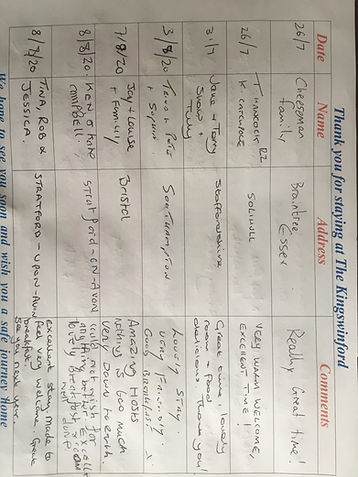 Thank you for staying at The Kingswinford
Date Name Address Comments
26/7 Cheeseman family Braintree Essex Really Great time!
26/7 T Hancock K VERY WARM WELCOME, EXCELLENT TIME!
SOLIHULL
31/7 Jake & Terry Staffordshire Great time, lovely
Tilly room + food
delicious. Thank you!
3/8/20 SOUTHAMPTON LOVELY STAY.
VERY FRIENDLY.
GOOD BREAKFAST
7/8/20 Jay + Louise Bristol AMAZING HOSTS
+ Family nothing is too much
very down to earth.
8/8/20. KEN & STRATFORD-ON-AVON could not wish for
CAMPBELL. anything better. EXCELLENT
lovely breakfast
WELL DONE
8/7/20 TINA, ROB & STRATFORD-UPON-AVON Excellent stay made to
JESSICA. feel very welcome. Great
breakfast.
See you next year.
We hope to see you soon and wish you a safe journey home